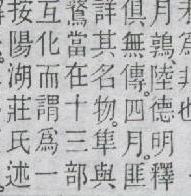 月鶉、陸德明釋
俱無傳。四月。匪
詳其名物。隼與
當在十三部
互化而謂爲一
按陽湖莊氏述